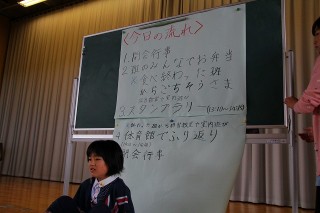 <今日の流れ>
1. 開会行事
2. 班のみんなでお弁当
食べ終わった班
からごちそうさま
3. スタンプラリー
4. 体育館でふり返り
閉会行事